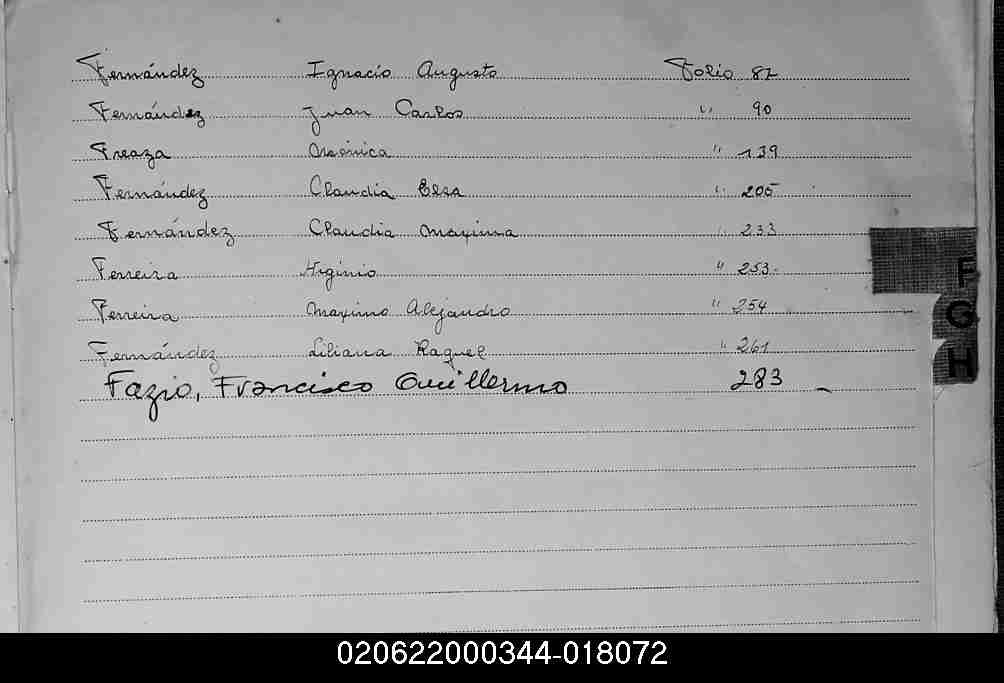 Fernández Ignacio Augusto Folio 82
Fernández Juan Carlos " 90
Freaza Mónica " 139
Fernández Claudia Elsa " 205
Fernández Claudia Maxima " 233
Ferreira Higinio " 253
Ferreira Maximo Alejandro " 254
Fernández Liliana Raquel " 261
Fazio, Francisco Guillermo 283
F
G
H
020622000344-018072